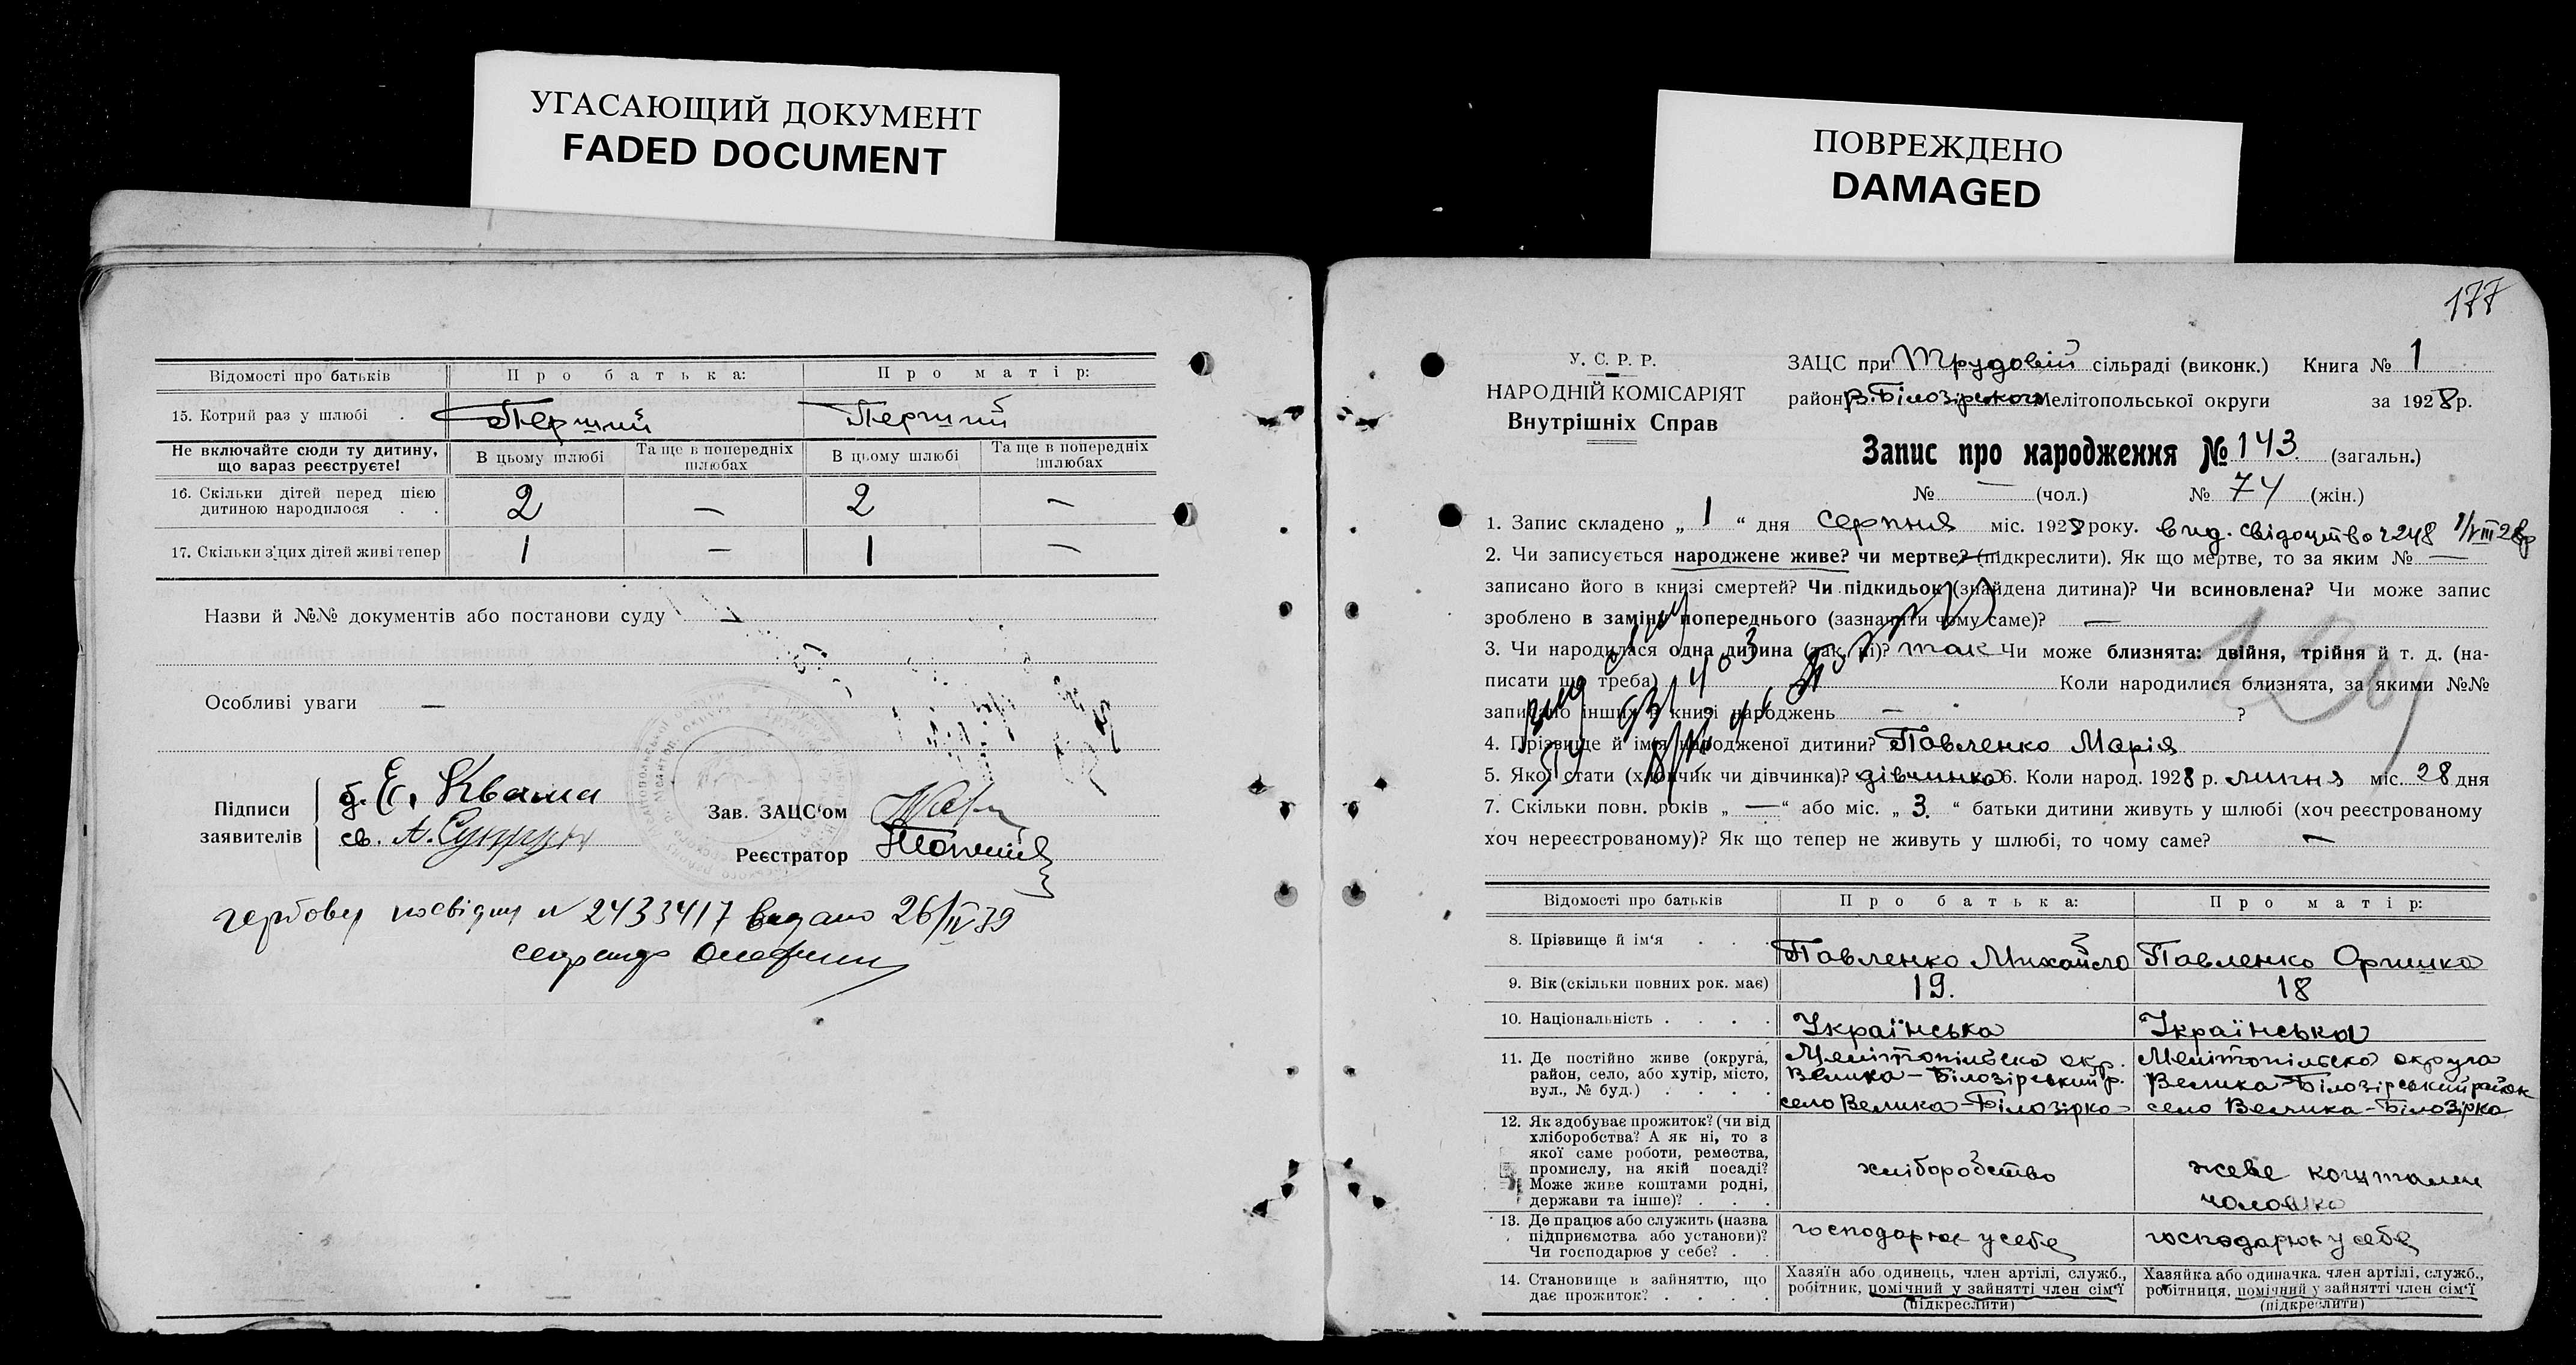 УГАСАЮЩИЙ ДОКУМЕНТ
FADED DOCUMENT
Відомості про батьків Про батька: Про матір:
15. Котрий раз у шлюбі . Перший Перший
Не включайте сюди ту дитину, що вараз реєструєте! В цьому шлюбі Та ще в попередніх шлюбах В цьому шлюбі Та ще в попередніх шлюбах
16. Скільки дітей перед цією дитиною народилося . . 2 — 2 —
17. Скільки з'цих дітей живі тепер 1 — 1 —
Назви й №№ документів або постанови суду —
Особливі уваги —
Підписи заявителів
б. Є. Кваша
св. А.
Зав. ЗАЦС'ом
Реєстратор
гербову посвідку N 2433417 видано 26/IV 39
ПОВРЕЖДЕНО
DAMAGED
177
У. С. Р. Р.
НАРОДНІЙ КОМІСАРІЯТ
Внутрішніх Справ
ЗАЦС при Трудовій сільраді (виконк.) Книга № 1
району В.Білозірського Мелітопольської округи за 1928 р.
Запис про народження № 143. (загальн.)
№ — (чол.) № 74 (жін.)
1. Запис складено „ 1 “ дня серпня міс. 1928 року. вид. свідоцтво ч 248 1/VIII 28р
2. Чи записується народжене живе? чи мертве? (підкреслити). Як що мертве, то за яким № —
записано його в книзі смертей? Чи підкидьок (знайдена дитина)? Чи всиновлена? Чи може запис
зроблено в заміну попереднього (зазначити чому саме)? —
3. Чи народилася одна дитина (так, ні)? так Чи може близнята: двійня, трійня й т. д. (на-
писати що треба) Коли народилися близнята, за якими №№
записано інших в книзі народжень — ?
4. Прізвище й ім'я народженої дитини? Павленко Марія
5. Якої стати (хлопчик чи дівчинка)? дівчинка 6. Коли народ. 1928 р. липня міс. 28 дня
7. Скільки повн. років „ — “ або міс. „ 3. “ батьки дитини живуть у шлюбі (хоч реєстрованому
хоч нереєстрованому)? Як що тепер не живуть у шлюбі, то чому саме? —
Відомості про батьків Про батька: Про матір:
8. Прізвище й ім'я . . . Павленко Михайло Павленко Оришка
9. Вік (скільки повних рок. має) 19. 18
10. Національність . . . . Українська Українська
11. Де постійно живе (округа, Мелітопільська окр. Мелітопільска округа
район, село, або хутір, місто, Велика-Білозірський р. Велика-Білозірський район
вул., № буд.) . . . . село Велика-Білозірка село Велика-Білозірка
12. Як здобуває прожиток? (чи від
хліборобства? А як ні, то з
якої саме роботи, ремества,
промислу, на якій посаді? хліборобство живе коштами
Може живе коштами родні, чоловіка
держави та інше)? . . .
13. Де працює або служить (назва
підприємства або установи)? господарює у себе господарює у себе
Чи господарює у себе? . .
14. Становище в зайняттю, що Хазяїн або одинець, член артілі, служб., Хазяйка або одиначка. член артілі, служб.,
дає прожиток? . . . . робітник, помічний у зайнятті член сім'ї робітниця, помічний у зайнятті член сім'ї
(підкреслити) (підкреслити)